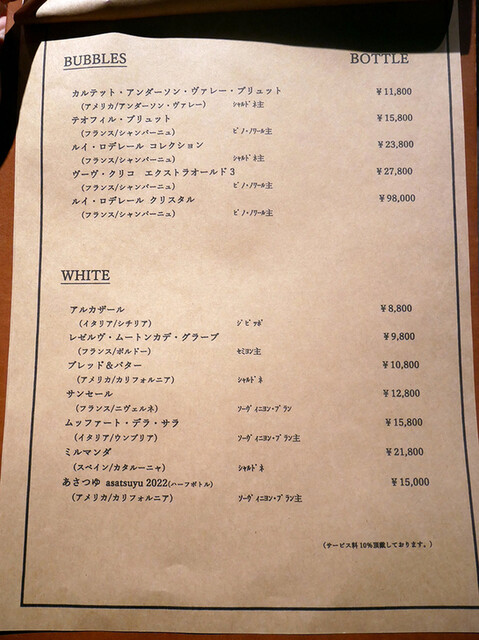 BUBBLES BOTTLE
カルテット・アンダーソン・ヴァレー・ブリュット ¥11,800
(アメリカ/アンダーソン・ヴァレー) ｼｬﾙﾄﾞﾈ主
テオフィル・ブリュット ¥15,800
(フランス/シャンパーニュ) ﾋﾟﾉ・ﾉﾜｰﾙ主
ルイ・ロデレール コレクション ¥23,800
(フランス/シャンパーニュ) ｼｬﾙﾄﾞﾈ主
ヴーヴ・クリコ エクストラオールド3 ¥27,800
(フランス/シャンパーニュ) ﾋﾟﾉ・ﾉﾜｰﾙ主
ルイ・ロデレール クリスタル ¥98,000
(フランス/シャンパーニュ) ﾋﾟﾉ・ﾉﾜｰﾙ主
WHITE
アルカザール ¥8,800
(イタリア/シチリア) ｼﾞﾋﾞｯﾎﾞ
レゼルヴ・ムートンカデ・グラーブ ¥9,800
(フランス/ボルドー) ｾﾐﾖﾝ主
ブレッド＆バター ¥10,800
(アメリカ/カリフォルニア) ｼｬﾙﾄﾞﾈ
サンセール ¥12,800
(フランス/ニヴェルネ) ｿｰｳﾞｨﾆﾖﾝ・ﾌﾞﾗﾝ
ムッファート・デラ・サラ ¥15,800
(イタリア/ウンブリア) ｿｰｳﾞｨﾆﾖﾝ・ﾌﾞﾗﾝ主
ミルマンダ ¥21,800
(スペイン/カタルーニャ) ｼｬﾙﾄﾞﾈ
あさつゆ asatsuyu 2022(ハーフボトル) ¥15,000
(アメリカ/カリフォルニア) ｿｰｳﾞｨﾆﾖﾝ・ﾌﾞﾗﾝ主
(サービス料10%頂戴しております。)